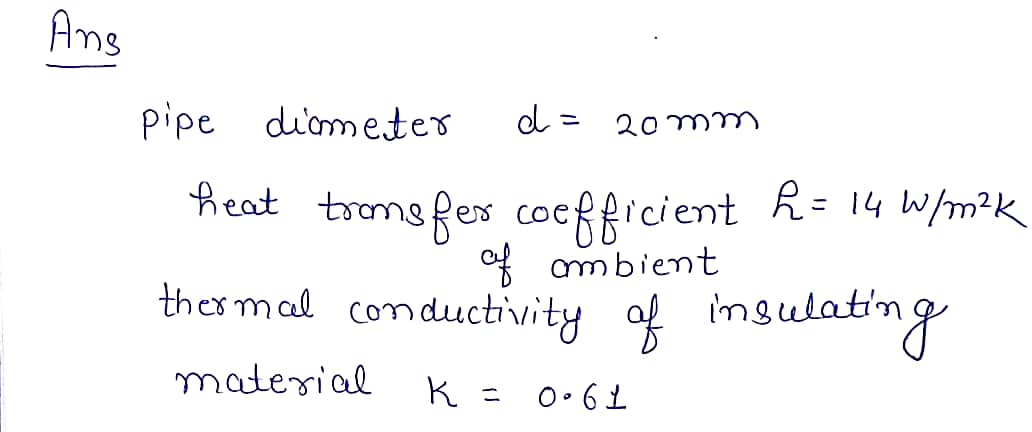 Ans
pipe diameter d = 20 mm
heat transfer coefficient h = 14 W/m²K
of ambient
thermal conductivity of insulating
material K = 0.61